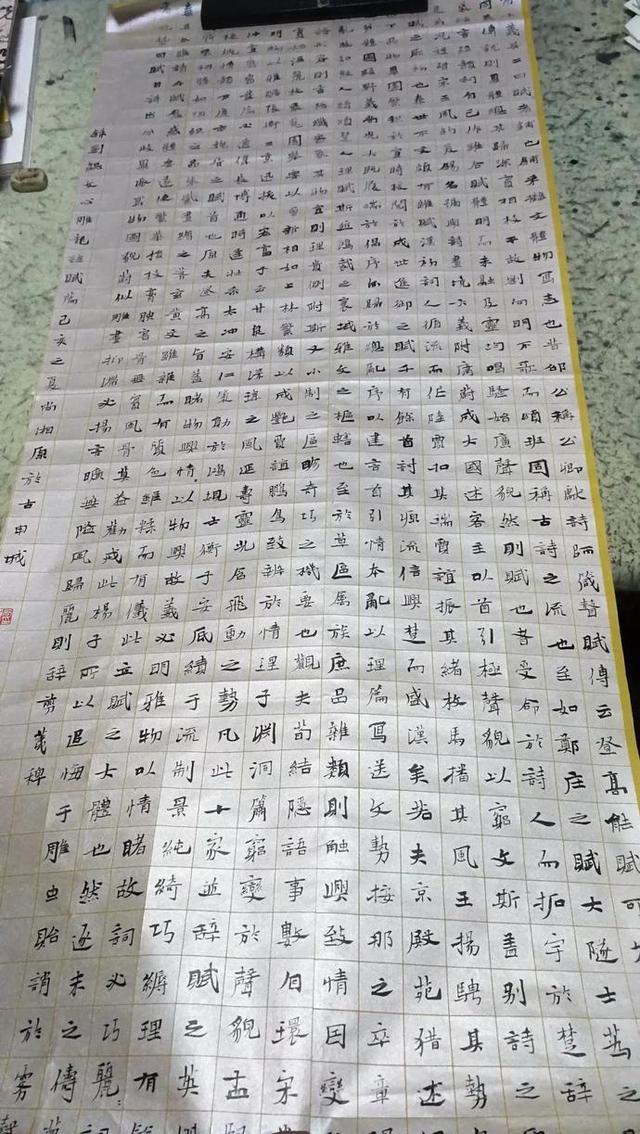 義其二曰賦賦者鋪也鋪采摛文體物寫志也昔邵公稱公卿獻詩師箴聲賦傳云登高能賦可
同義傳說則異體總其歸塗實相枝幹故劉向明不歌而頌班固稱古詩之流也至如鄭庄之賦大隧士蒍之
韻詞自己作雖合賦體明而未融及靈均唱騷始廣聲貌然則賦也者受命於詩人而拓宇於楚辭
況禮智宋玉風釣爰錫名號與詩畫境六義附庸蔚成大國述客主以首引極聲貌以窮文斯盖別詩之
賦之厥初也秦世不文頗有雜賦漢初詞人循流而作陸賈扣其端賈誼振其緒枚馬播其風王揚騁其勢
下品物畢圖繁積於宣時校閱於成世進御之賦千有餘首討其源流信興楚而盛漢矣若夫京殿苑猎述
體國經野義尚光大既履端於倡序亦歸餘於總亂序以建言首引情本亂以理篇寫送文勢按那之卒章
亂故知殷人緝頌楚人理賦斯並鴻裁之寰域雅文之樞轄也至於草區禽族庶品雜類則觸興致情因變
形容則言務纖密象其物宜則理貴側附斯又小制之區畛奇巧之機要也觀夫荀結隱語事數自環宋
實始淫麗枚乘兔園舉要以會新相如上林繁類以成艷賈誼鵬鳥致辨於情理子淵洞簫窮變於聲貌孟
明絢以雅贍張衡二京迅發以宏富子雲甘泉構深瑋之風延壽靈光含飛動之勢凡此十家並辭賦之英
仲宣靡密發端必遒偉長博通時逢壯采太沖安仁策勛於鴻規士衡子安底績於流制景純綺巧縟理有
梗概情韻不匱亦魏晉之賦首也原夫登高之旨蓋睹物興情情以物興故義必明雅物以情睹故詞必巧麗
義符采相勝如組織之品朱紫畫繪之著玄黃文雖雜而有質色雖糅而有儀此立賦之大體也然逐末之儔
其本雖讀千賦愈惑體要遂使繁華損枝膏腴害骨無實風軌莫益勸戒此楊子所以追悔于雕虫貽誚於霧
贊曰賦自詩出異流分派寫物圖貌蔚似雕畫抑滯必揚言曠無隘風歸麗則辭剪荑稗
錄劉勰文心雕龍詮賦篇己亥之夏尚湘原於古申城